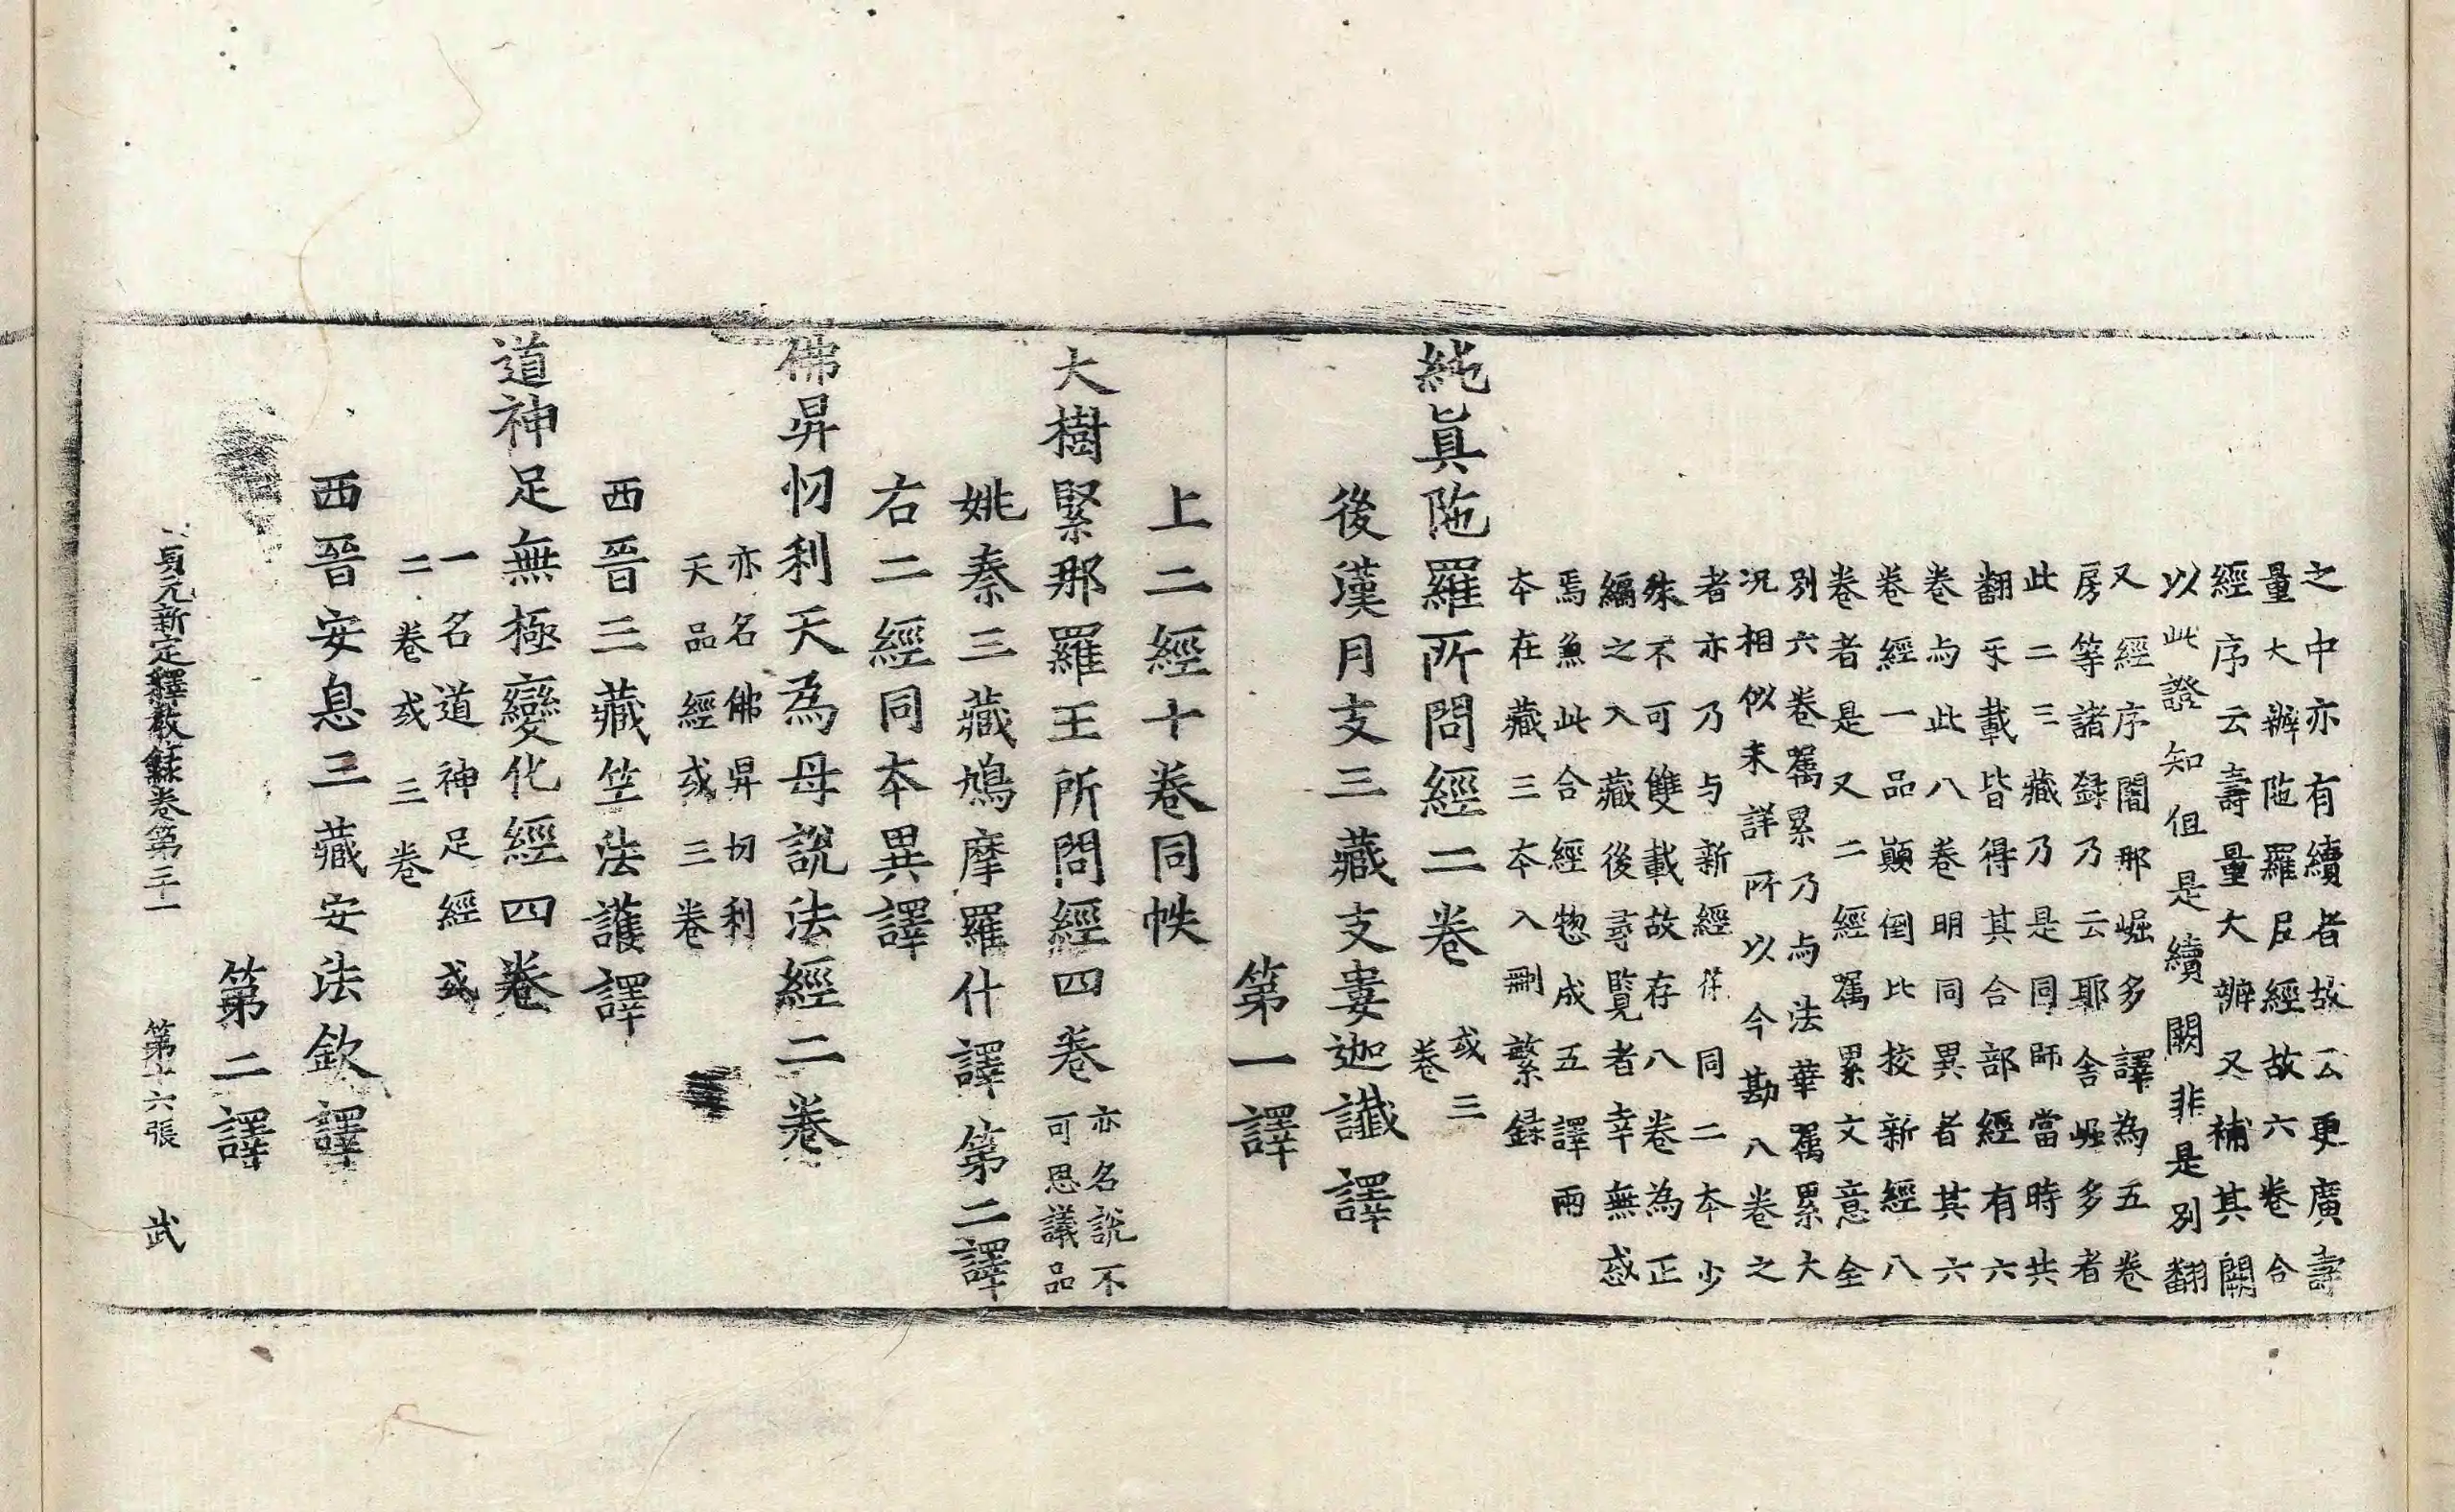 之中亦有續者故云更廣壽
量大辦陁羅尼經故六卷合
經序云壽量大辦又補其闕
以此證知但是續闕非是別翻
又經序闍那崛多譯為五卷
房等諸録乃云耶舍崛多者
此二三藏乃是同師當時共
翻乐載皆得其合部經有六
卷与此八卷明同異者其六
卷經一品顛倒比挍新經八
卷者是又二經囑累文意全
別六卷囑累乃与法華囑累大
况相似未詳所以今勘八卷之
者亦乃与新經同二本少
殊不可雙載故存八卷為正
編之入藏後尋覽者幸無惑
焉兼此合經惣成五譯兩
本在藏三本入刪繁録
純眞陁羅所問經二卷
或三
卷
後漢月支三藏支婁迦讖譯
第一譯
上二經十卷同帙
大樹緊那羅王所問經四卷
亦名說不
可思議品
姚秦三藏鳩摩羅什譯第二譯
右二經同本異譯
佛昇忉利天為母說法經二卷
亦名佛昇忉利
天品經或三卷
西晉三藏竺法護譯
道神足無極變化經四卷
一名道神足經或
二卷或三卷
西晉安息三藏安法欽譯
第二譯
貞元新定釋教録卷第三十一 第十六張 武